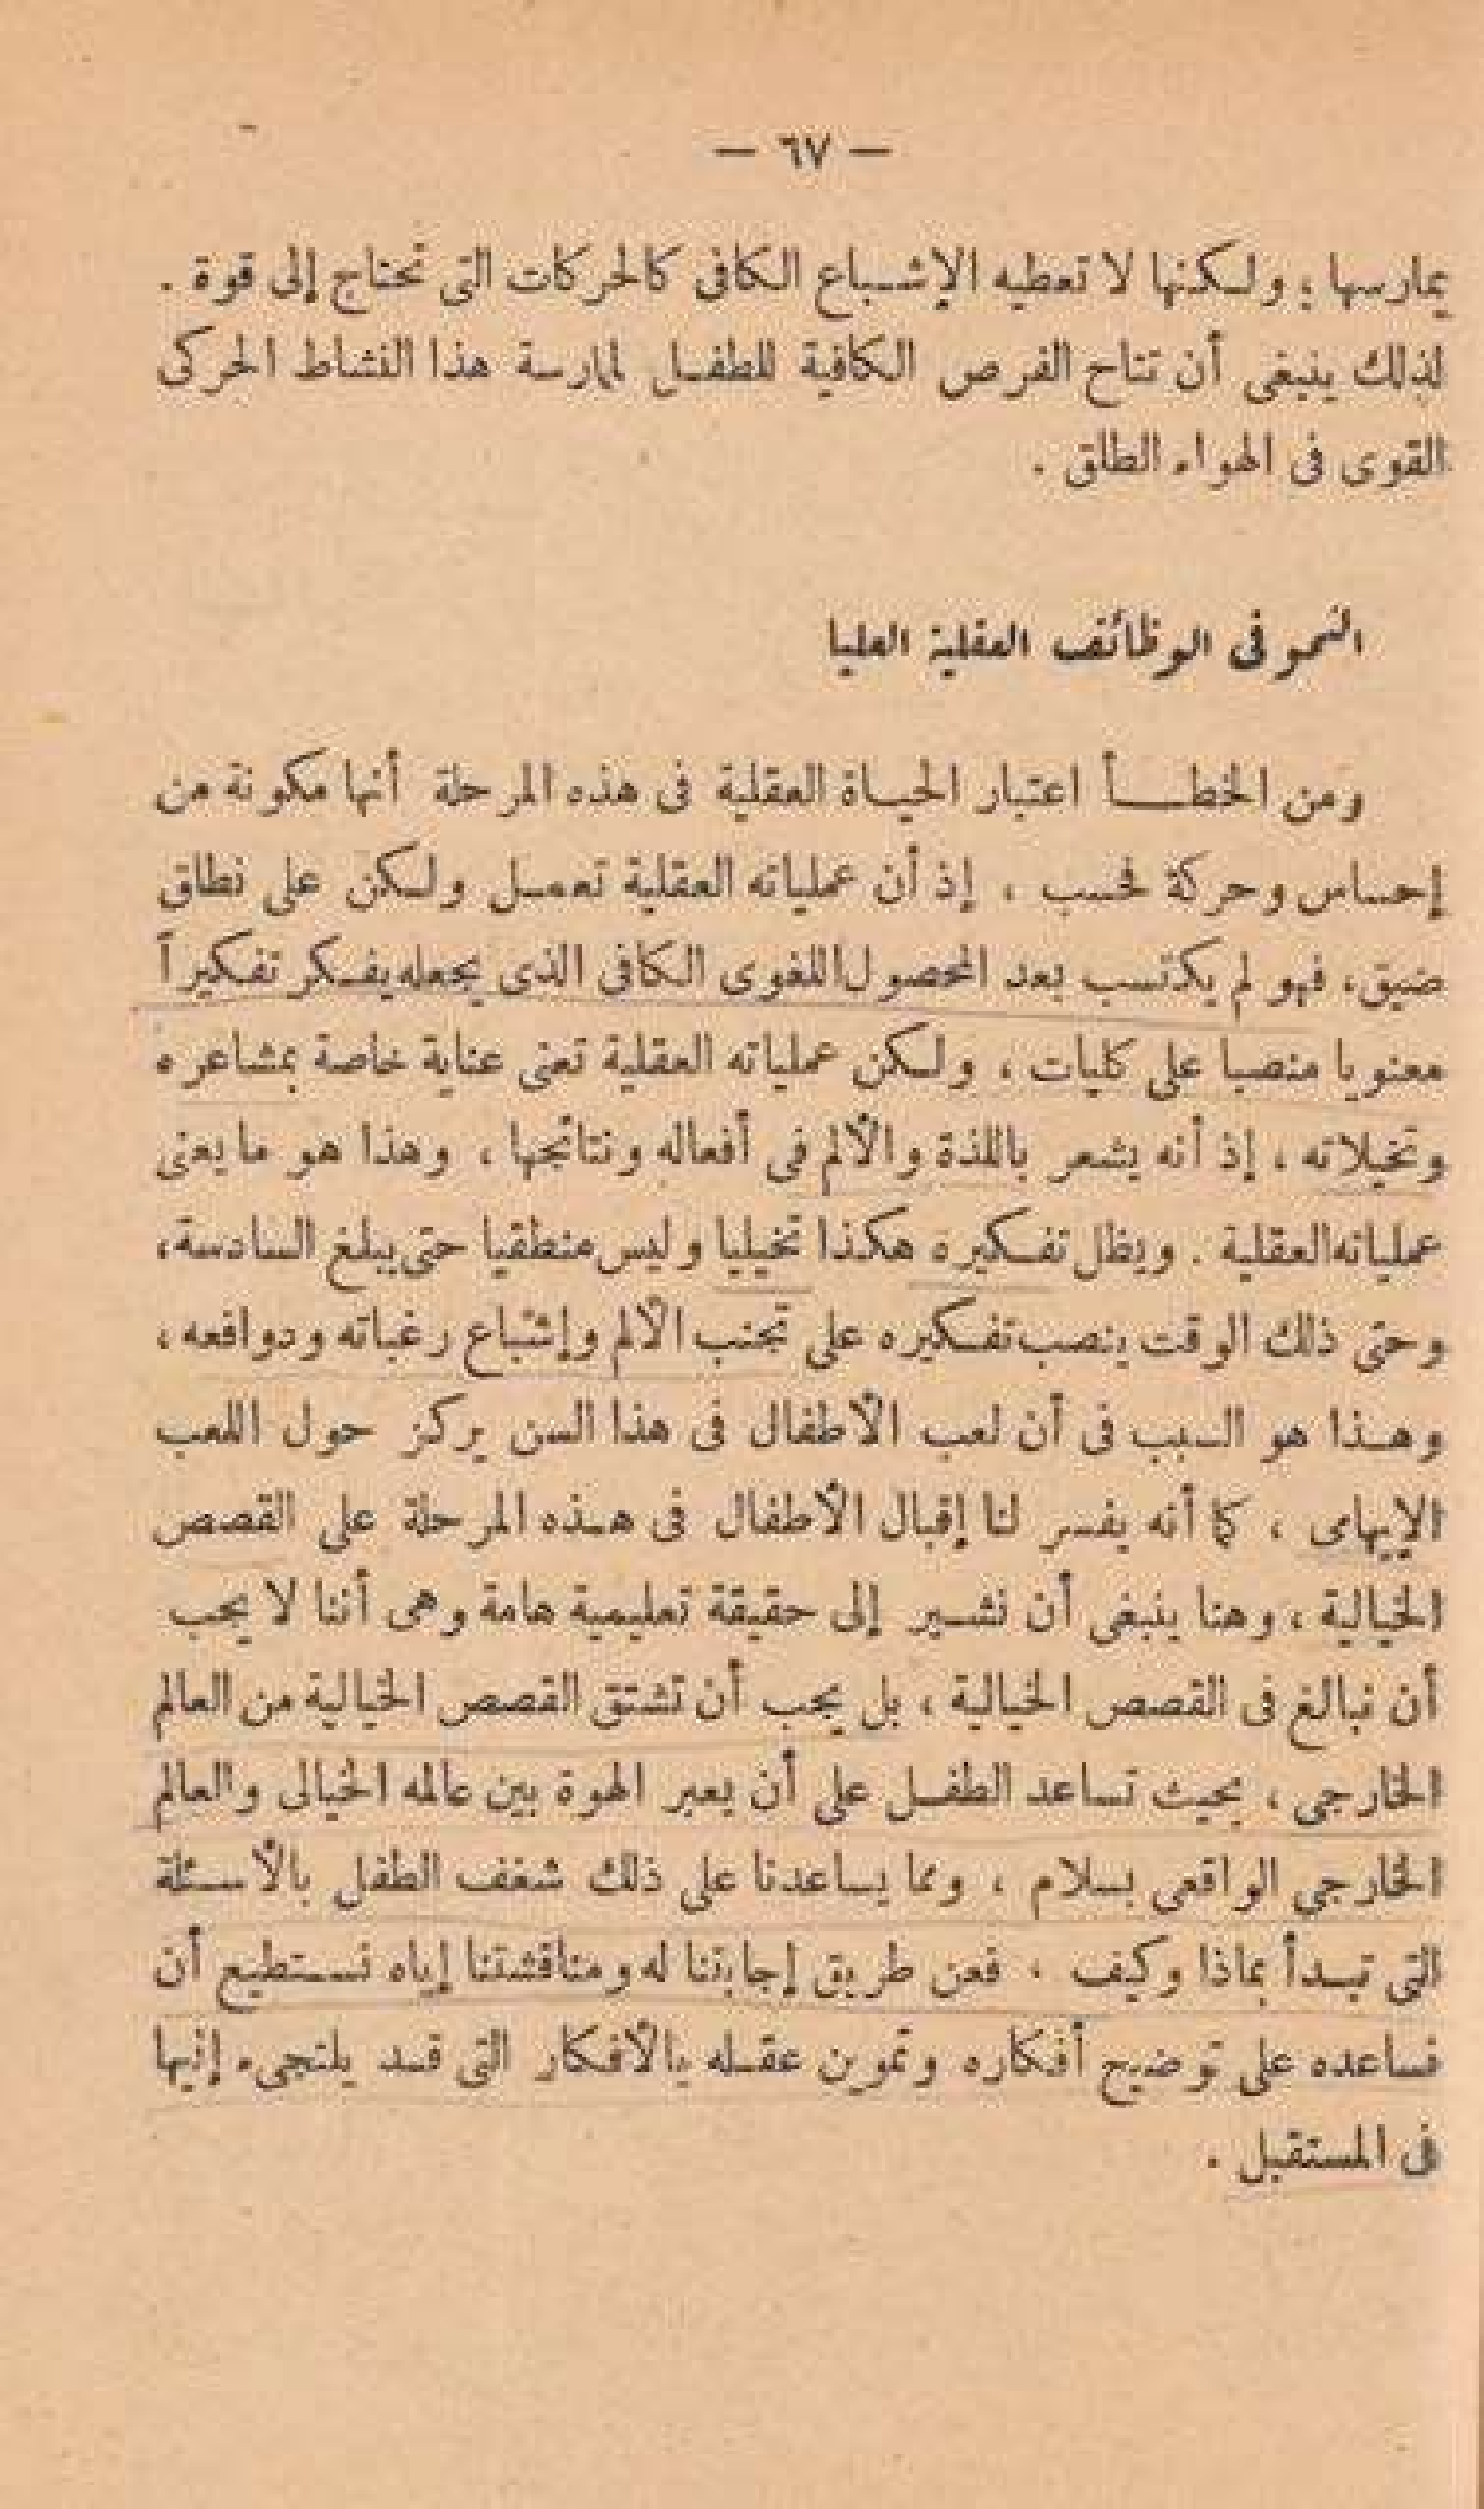 — ٦٧ —
يمارسها ؛ ولكنها لا تعطيه الإشباع الكافى كالحركات التى تحتاج إلى قوة .
لذلك ينبغى أن تتاح الفرص الكافية للطفل لممارسة هذا النشاط الحركى
القوى فى الهواء الطلق .
النمو فى الوظائف العقلية العليا
ومن الخطأ اعتبار الحياة العقلية فى هذه المرحلة أنها مكونة من
إحساس وحركة فحسب ، إذ أن عملياته العقلية تعمل ولكن على نطاق
ضيق، فهو لم يكتسب بعد المحصول اللغوى الكافى الذى يجعله يفكر تفكيراً
معنويا منصبا على كليات ، ولكن عملياته العقلية تعنى عناية خاصة بمشاعره
وتخيلاته ، إذ أنه يشعر باللذة والألم فى أفعاله ونتائجها ، وهذا هو ما يعنى
عملياته العقلية . ويظل تفكيره هكذا تخيليا وليس منطقيا حتى يبلغ السادسة،
وحتى ذلك الوقت ينصب تفكيره على تجنب الألم وإشباع رغباته ودوافعه ،
وهذا هو السبب فى أن لعب الأطفال فى هذا السن يركز حول اللعب
الإيهامى ، كما أنه يفسر لنا إقبال الأطفال فى هذه المرحلة على القصص
الخيالية ، وهنا ينبغى أن نشير إلى حقيقة تعليمية هامة وهى أننا لا يجب
أن نبالغ فى القصص الخيالية ، بل يجب أن تشتق القصص الخيالية من العالم
الخارجى ، بحيث تساعد الطفل على أن يعبر الهوة بين عالمه الخيالى والعالم
الخارجى الواقعى بسلام ، ومما يساعدنا على ذلك شغف الطفل بالأسئلة
التى تبدأ بماذا وكيف ، فعن طريق إجابتنا له ومناقشتنا إياه نستطيع أن
نساعده على توضيح أفكاره وتموين عقله بالأفكار التى قد يلتجىء إليها
فى المستقبل .